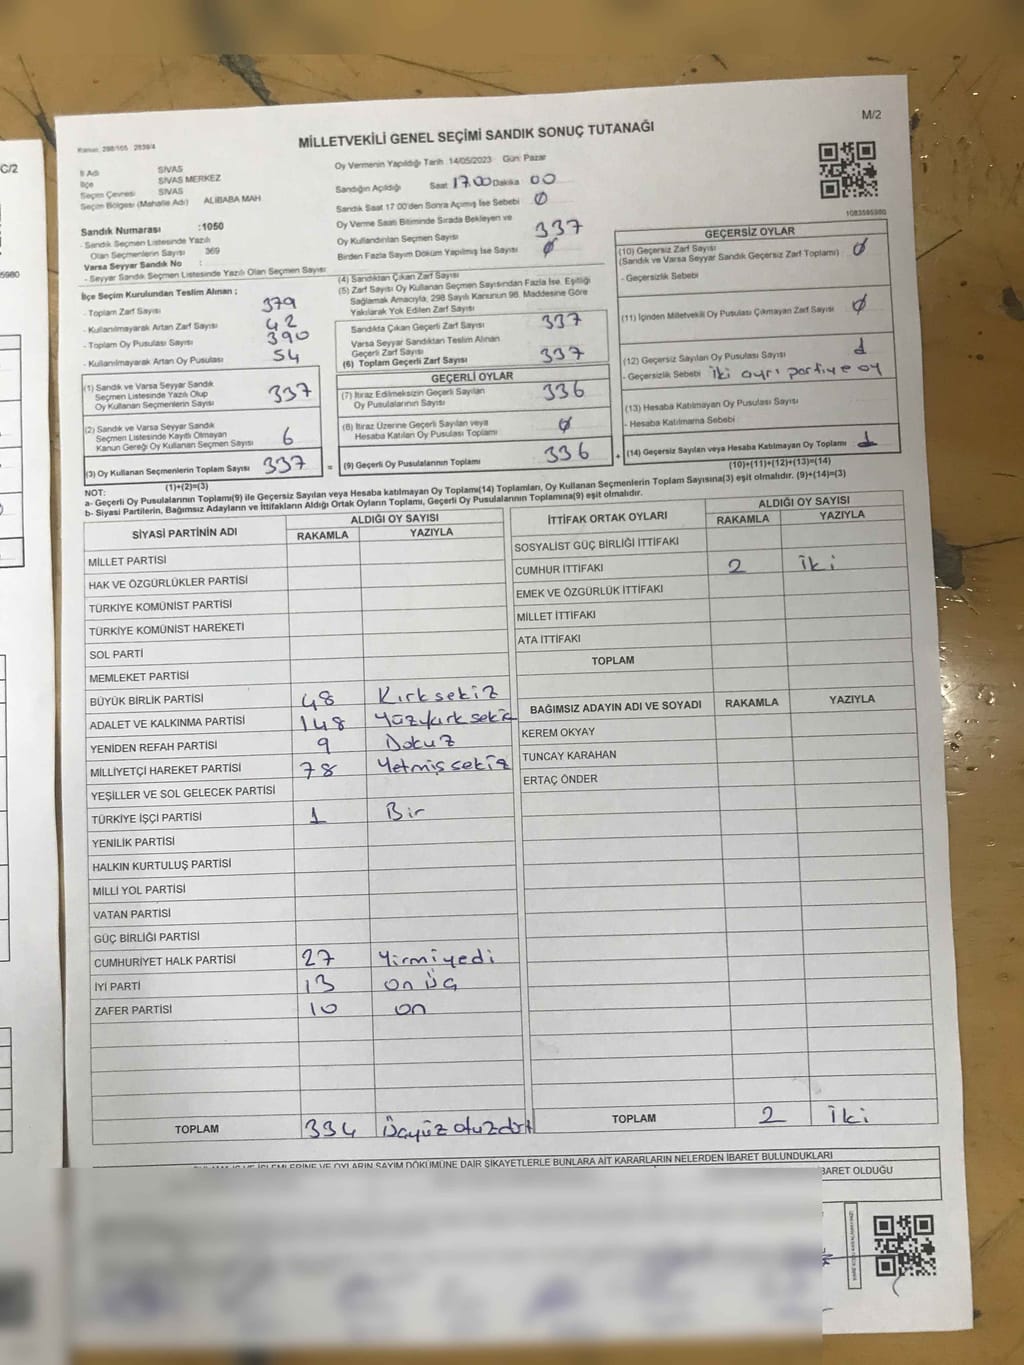 C/2
5980
M/2
MİLLETVEKİLİ GENEL SEÇİMİ SANDIK SONUÇ TUTANAĞI
Kanun: 298/105 2839/4
İl Adı SİVAS
İlçe SİVAS MERKEZ
Seçim Çevresi SİVAS
Seçim Bölgesi (Mahalle Adı) ALİBABA MAH.
Sandık Numarası :1050
- Sandık Seçmen Listesinde Yazılı
Olan Seçmenlerin Sayısı 369
Varsa Seyyar Sandık No :
- Seyyar Sandık Seçmen Listesinde Yazılı Olan Seçmen Sayısı
Oy Vermenin Yapıldığı Tarih 14/05/2023 Gün: Pazar
Sandığın Açıldığı Saat 17.00 Dakika 00
Sandık Saat 17 00'den Sonra Açılmış İse Sebebi Ø
Oy Verme Saati Bitiminde Sırada Bekleyen ve
Oy Kullandırılan Seçmen Sayısı 337
Birden Fazla Sayım Döküm Yapılmış İse Sayısı Ø
1083595980
İlçe Seçim Kurulundan Teslim Alınan ;
- Toplam Zarf Sayısı 379
- Kullanılmayarak Artan Zarf Sayısı 42
- Toplam Oy Pusulası Sayısı 390
- Kullanılmayarak Artan Oy Pusulası 54
(1) Sandık ve Varsa Seyyar Sandık
Seçmen Listesinde Yazılı Olup
Oy Kullanan Seçmenlerin Sayısı 337
(2) Sandık ve Varsa Seyyar Sandık
Seçmen Listesinde Kayıtlı Olmayan
Kanun Gereği Oy Kullanan Seçmen Sayısı 6
(3) Oy Kullanan Seçmenlerin Toplam Sayısı 337 =
(1)+(2)=(3)
(4) Sandıktan Çıkan Zarf Sayısı
(5) Zarf Sayısı Oy Kullanan Seçmen Sayısından Fazla İse, Eşitliği
Sağlamak Amacıyla, 298 Sayılı Kanunun 98. Maddesine Göre
Yakılarak Yok Edilen Zarf Sayısı
Sandıkta Çıkan Geçerli Zarf Sayısı 337
Varsa Seyyar Sandıktan Teslim Alınan
Geçerli Zarf Sayısı
(6) Toplam Geçerli Zarf Sayısı 337
GEÇERLİ OYLAR
(7) İtiraz Edilmeksizin Geçerli Sayılan
Oy Pusulalarının Sayısı 336
(8) İtiraz Üzerine Geçerli Sayılan veya
Hesaba Katılan Oy Pusulası Toplamı Ø
(9) Geçerli Oy Pusulalarının Toplamı 336 +
GEÇERSİZ OYLAR
(10) Geçersiz Zarf Sayısı
(Sandık ve Varsa Seyyar Sandık Geçersiz Zarf Toplamı) Ø
- Geçersizlik Sebebi
(11) İçinden Milletvekili Oy Pusulası Çıkmayan Zarf Sayısı Ø
(12) Geçersiz Sayılan Oy Pusulası Sayısı 1
- Geçersizlik Sebebi iki ayrı partiye oy
(13) Hesaba Katılmayan Oy Pusulası Sayısı
- Hesaba Katılmama Sebebi
(14) Geçersiz Sayılan veya Hesaba Katılmayan Oy Toplamı 1
(10)+(11)+(12)+(13)=(14)
NOT:
a- Geçerli Oy Pusulalarının Toplamı(9) ile Geçersiz Sayılan veya Hesaba katılmayan Oy Toplamı(14) Toplamları, Oy Kullanan Seçmenlerin Toplam Sayısına(3) eşit olmalıdır. (9)+(14)=(3)
b- Siyasi Partilerin, Bağımsız Adayların ve İttifakların Aldığı Ortak Oyların Toplamı, Geçerli Oy Pusulalarının Toplamına(9) eşit olmalıdır.
SİYASİ PARTİNİN ADI ALDIĞI OY SAYISI
RAKAMLA YAZIYLA
MİLLET PARTİSİ
HAK VE ÖZGÜRLÜKLER PARTİSİ
TÜRKİYE KOMÜNİST PARTİSİ
TÜRKİYE KOMÜNİST HAREKETİ
SOL PARTİ
MEMLEKET PARTİSİ
BÜYÜK BİRLİK PARTİSİ 48 Kırksekiz
ADALET VE KALKINMA PARTİSİ 148 Yüzkırk sekiz
YENİDEN REFAH PARTİSİ 9 Dokuz
MİLLİYETÇİ HAREKET PARTİSİ 78 Yetmiş sekiz
YEŞİLLER VE SOL GELECEK PARTİSİ
TÜRKİYE İŞÇİ PARTİSİ 1 Bir
YENİLİK PARTİSİ
HALKIN KURTULUŞ PARTİSİ
MİLLİ YOL PARTİSİ
VATAN PARTİSİ
GÜÇ BİRLİĞİ PARTİSİ
CUMHURİYET HALK PARTİSİ 27 Yirmiyedi
İYİ PARTİ 13 on üç
ZAFER PARTİSİ 10 on
TOPLAM 334 Üçyüz otuzdört
İTTİFAK ORTAK OYLARI ALDIĞI OY SAYISI
RAKAMLA YAZIYLA
SOSYALİST GÜÇ BİRLİĞİ İTTİFAKI
CUMHUR İTTİFAKI 2 iki
EMEK VE ÖZGÜRLÜK İTTİFAKI
MİLLET İTTİFAKI
ATA İTTİFAKI
TOPLAM
BAĞIMSIZ ADAYIN ADI VE SOYADI RAKAMLA YAZIYLA
KEREM OKYAY
TUNCAY KARAHAN
ERTAÇ ÖNDER
TOPLAM 2 iki
OYLARIN SAYIM DÖKÜMÜNE DAİR ŞİKAYETLERLE BUNLARA AİT KARARLARIN NELERDEN İBARET BULUNDUKLARI
BARET OLDUĞU